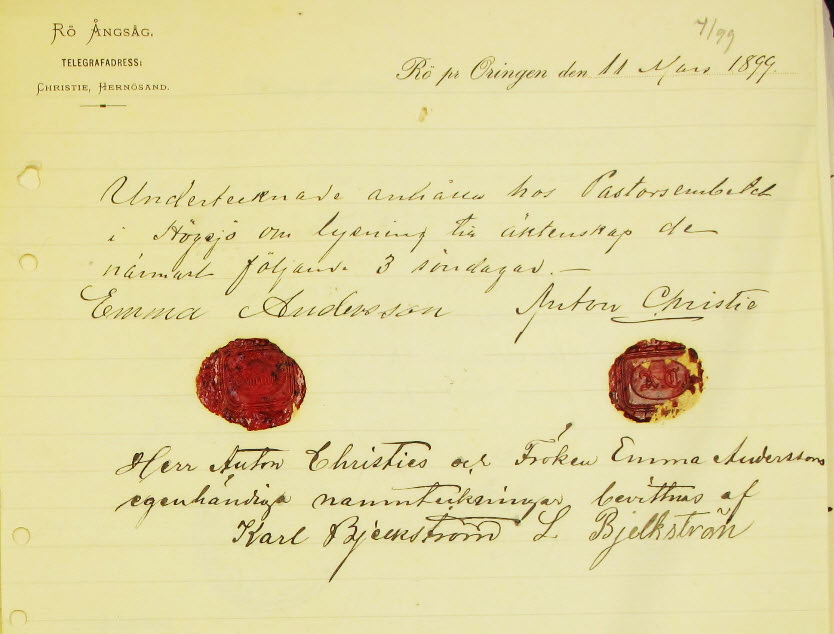 RÖ ÅNGSÅG.
TELEGRAFADRESS:
CHRISTIE, HERNÖSAND.
7/99
Rö pr Öringen den 11 Mars 1899.
Undertecknade anhålla hos Pastorsembetet
i Högsjö om lysning till äktenskap de
närmast följande 3 söndagar. —
Emma Andersson Anton Christie
Herr Anton Christies och Fröken Emma Anderssons
egenhändiga namnteckningar bevittnas af
Karl Bjelkström L Bjelkström